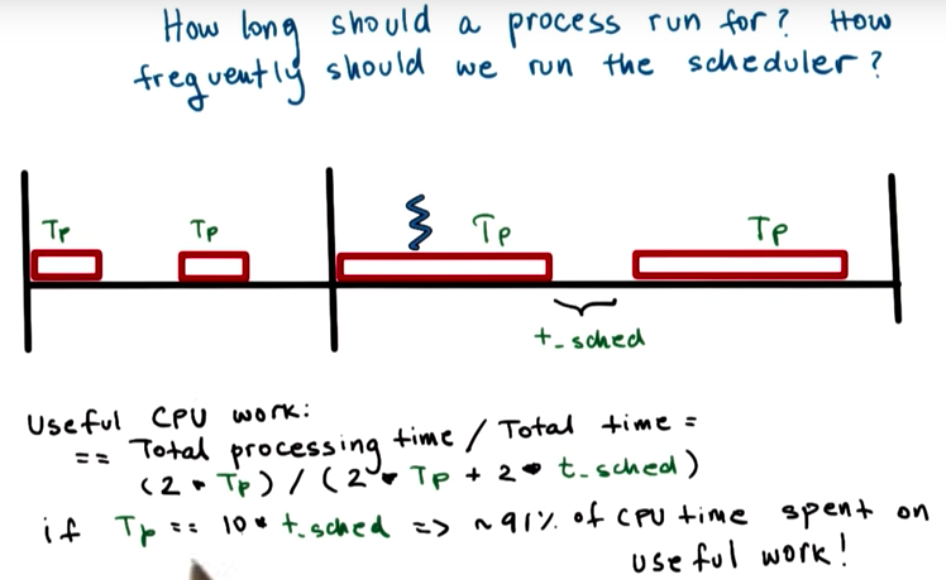 How long should a process run for? How
frequently should we run the scheduler?
Tp Tp Tp Tp
t_sched
Useful CPU work:
== Total processing time / Total time =
(2 * Tp) / (2 * Tp + 2 * t_sched)
if Tp == 10 * t_sched => ~91% of CPU time spent on
useful work!